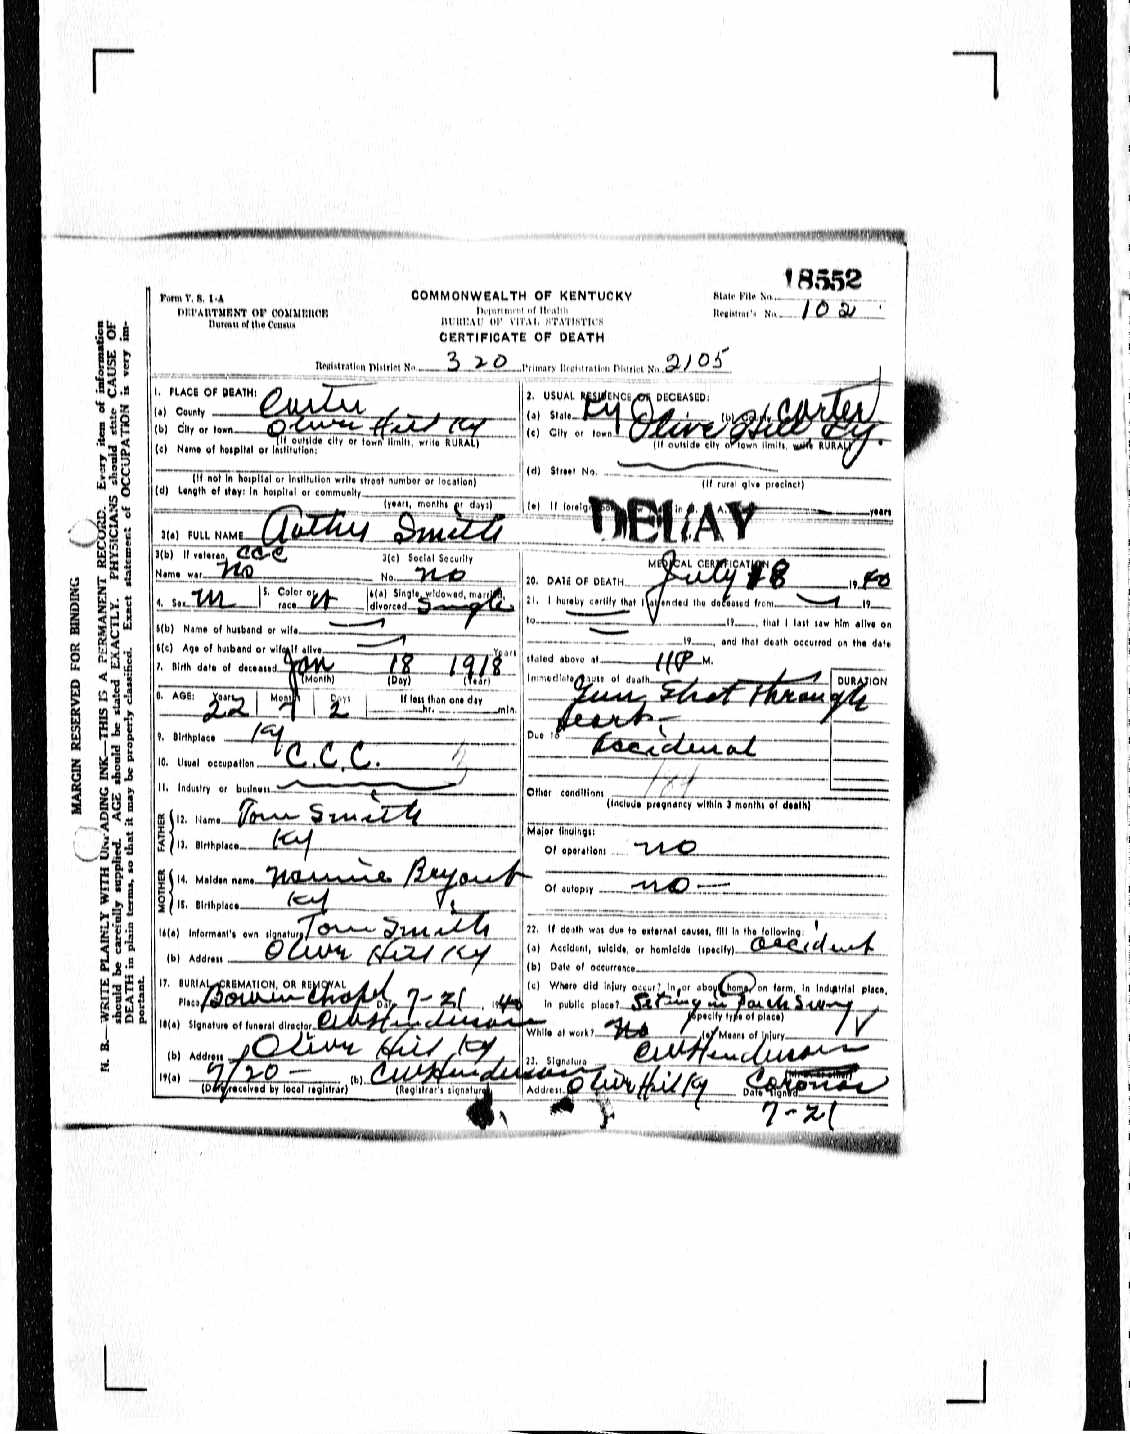 18552
Form V. S. 1-A
COMMONWEALTH OF KENTUCKY
State File No.
DEPARTMENT OF COMMERCE
Department of Health
Registrar's No. 102
Bureau of the Census
BUREAU OF VITAL STATISTICS
CERTIFICATE OF DEATH
Registration District No. 320 Primary Registration District No. 2105
MARGIN RESERVED FOR BINDING
N. B.—WRITE PLAINLY WITH UNFADING INK—THIS IS A PERMANENT RECORD. Every item of information
should be carefully supplied. AGE should be stated EXACTLY. PHYSICIANS should state CAUSE OF
DEATH in plain terms, so that it may be properly classified. Exact statement of OCCUPATION is very im-
portant.
1. PLACE OF DEATH:
(a) County Carter
(b) City or town Olive Hill Ky
(If outside city or town limits, write RURAL)
(c) Name of hospital or institution:
(If not in hospital or institution write street number or location)
(d) Length of stay: In hospital or community
(years, months or days)
3(a) FULL NAME Smith
3(b) If veteran, CCC
Name war No
3(c) Social Security
No. no
4. Sex M
5. Color or race W
6(a) Single, widowed, married, divorced Single
6(b) Name of husband or wife
6(c) Age of husband or wife if alive Years
7. Birth date of deceased Jan 18 1918
(Month) (Day) (Year)
8. AGE: Years 22 Months Days 2 If less than one day hr. min.
9. Birthplace Ky
10. Usual occupation C.C.C.
11. Industry or business
FATHER
12. Name Tom Smith
13. Birthplace Ky
MOTHER
14. Maiden name Nannie Bryant
15. Birthplace Ky
16(a) Informant's own signature Tom Smith
(b) Address Olive Hill Ky
17. BURIAL, CREMATION, OR REMOVAL
Place Bowen Chapel Date 7-21 1940
18(a) Signature of funeral director CW Henderson
(b) Address Olive Hill Ky
19(a) 7/20- (b) CW Henderson
(Date received by local registrar) (Registrar's signature)
2. USUAL RESIDENCE OF DECEASED:
(a) State Ky (b) County Carter
(c) City or town Olive Hill Ky.
(If outside city or town limits, write RURAL)
(d) Street No.
(If rural give precinct)
(e) If foreign born, in U. S. A. years
DELAY
MEDICAL CERTIFICATION
20. DATE OF DEATH July 18 1940
21. I hereby certify that I attended the deceased from 19
to 19, that I last saw him alive on
19, and that death occurred on the date
stated above at 11 P M.
Immediate cause of death
DURATION
Gun Shot Through
Heart-
Due to Accidenal
Other conditions
(Include pregnancy within 3 months of death)
Major findings:
Of operations no
Of autopsy no-
22. If death was due to external causes, fill in the following:
(a) Accident, suicide, or homicide (specify) accident
(b) Date of occurrence
(c) Where did injury occur? In or about home, on farm, in industrial place,
in public place? Seting in Porch Swing
(Specify type of place)
While at work? No (e) Means of injury
23. Signature CW Henderson
Address Olive Hill Ky Coronor
Date signed 7-21